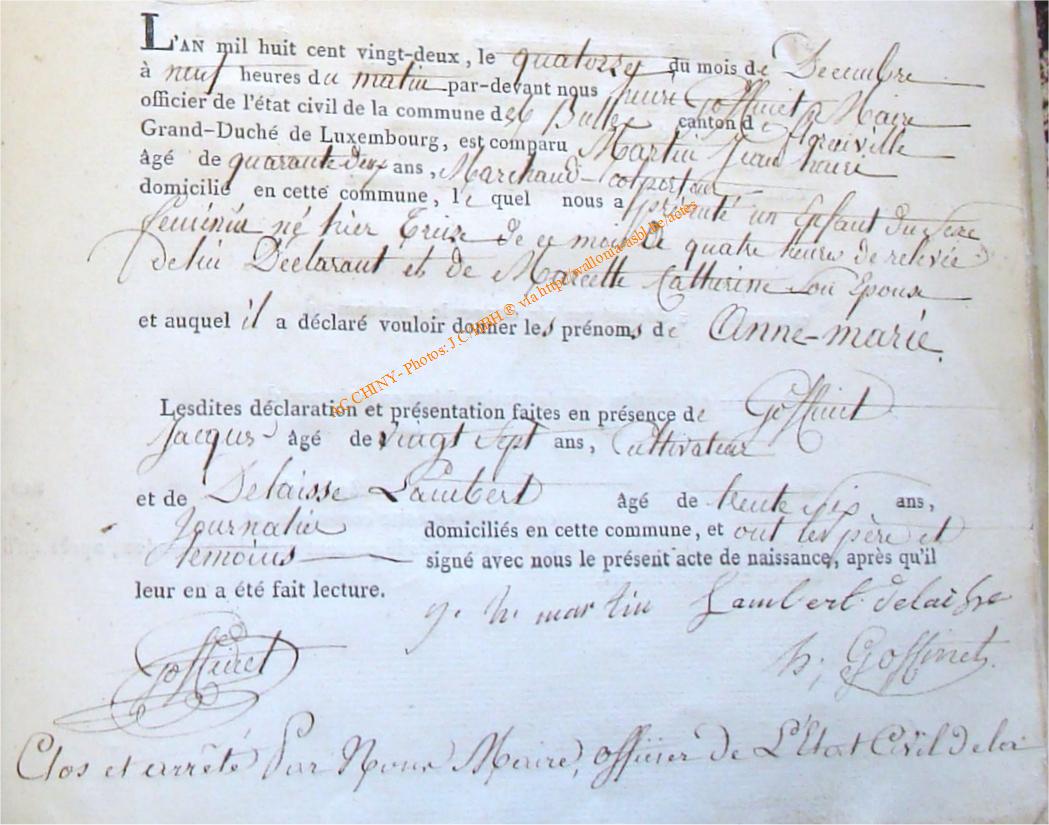 L'AN mil huit cent vingt-deux, le quatorze du mois de Decembre
à neuf heures du matin par-devant nous Goffinet Maire
officier de l'état civil de la commune de Bulles canton de
Grand-Duché de Luxembourg, est comparu Martin Jean
âgé de quarante deux ans, Marchand colporteur
domicilié en cette commune, le quel nous a présenté un Enfant du Sexe
feminin né hier treize de ce mois à quatre heures de relevée
de lui Déclarant et de Marcelle Catherine son Epouse
et auquel il a déclaré vouloir donner les prénoms de Anne-marie.
AC CHINY - Photos: J.C. MBH ® via http://wallonia-asbl.be/actes
Lesdites déclaration et présentation faites en présence de Goffinet
Jacques âgé de vingt Sept ans, Cultivateur
et de Delaisse Lambert âgé de trente six ans,
Journalier domiciliés en cette commune, et ont les père et
temoins signé avec nous le présent acte de naissance, après qu'il
leur en a été fait lecture.
martin Lambert delaisse
Goffinet
Goffinet
Clos et arrêté Par Nous Maire, officier de L'Etat Civil de la